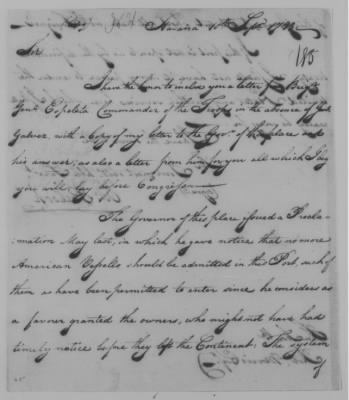 Havana 10th Sepr. 1782
185
Sir
I have the honor to inclose you a letter from Brigr.
Genl. Espeleta Commander of the Troops in the absence of Genl.
Galvez, with a Copy of my letter to the Govr. of this place and
his answer, as also a letter from him for you all which I beg
you will lay before Congress
The Governor of this place issued a Procla-
-mation May last, in which he gave notice that no more
American Vessells should be admitted in this Port, such of
them as have been permitted to enter since he considers as
a favor granted the owners, who might not have had
timely notice before they left the Continent; The system
of